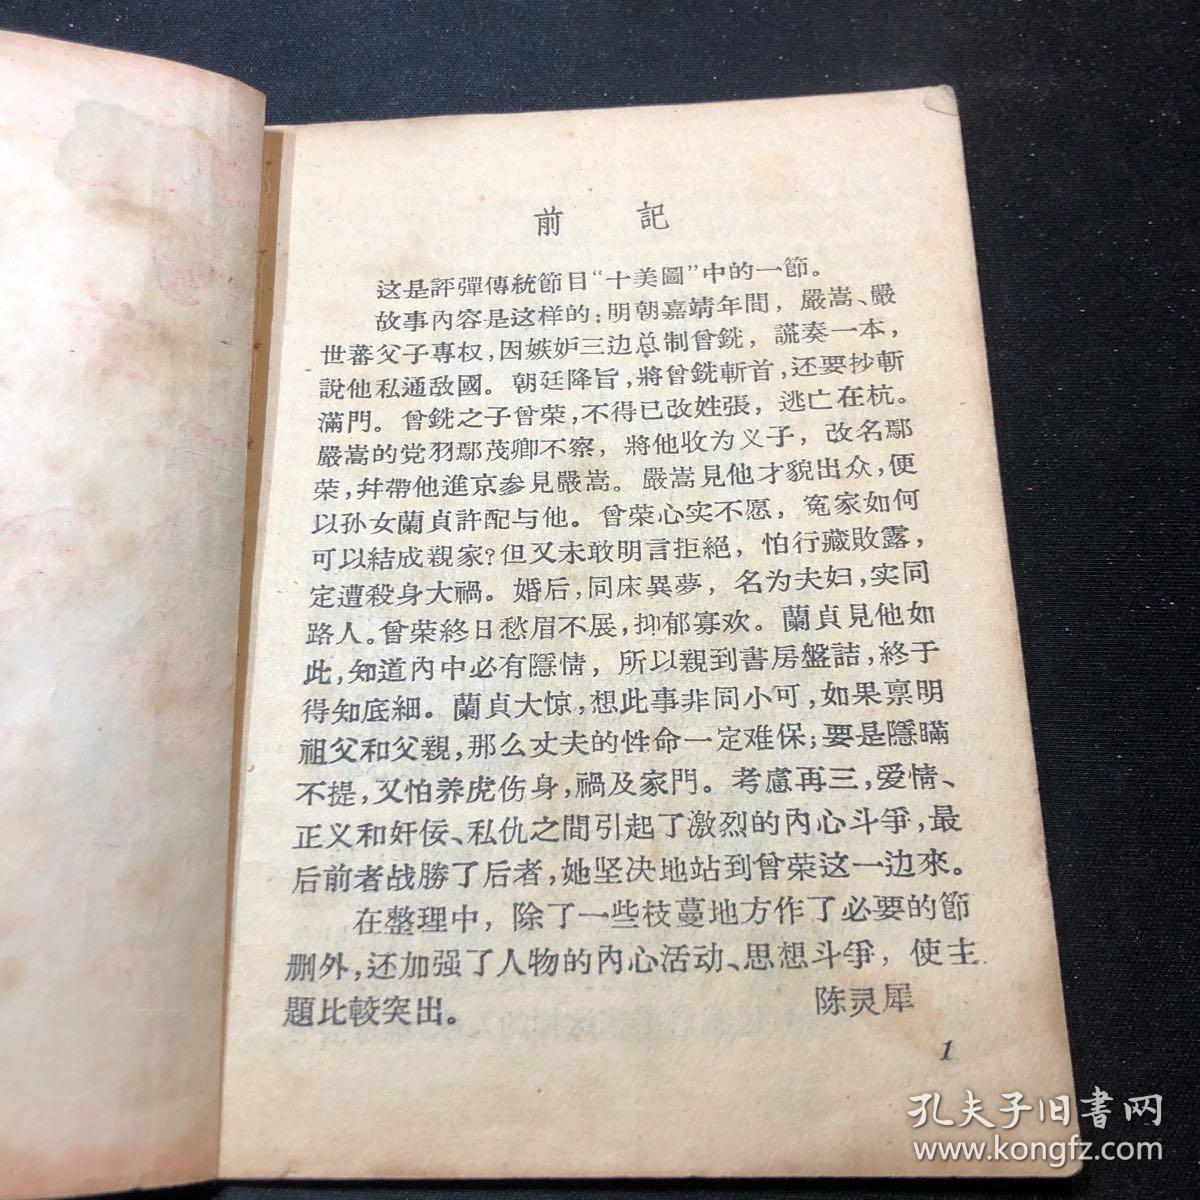 前 記
这是評彈傳統節目“十美圖”中的一節。
故事內容是这样的：明朝嘉靖年間，嚴嵩、嚴
世蕃父子專权，因嫉妒三边总制曾銑，謊奏一本，
說他私通敌國。朝廷降旨，將曾銑斬首，还要抄斬
滿門。曾銑之子曾荣，不得已改姓張，逃亡在杭。
嚴嵩的党羽鄢茂卿不察，將他收为义子，改名鄢
荣，幷帶他進京参見嚴嵩。嚴嵩見他才貌出众，便
以孙女蘭貞許配与他。曾荣心实不愿，冤家如何
可以結成親家？但又未敢明言拒絕，怕行藏敗露，
定遭殺身大禍。婚后，同床異夢，名为夫妇，实同
路人。曾荣終日愁眉不展，抑郁寡欢。蘭貞見他如
此，知道內中必有隱情，所以親到書房盤詰，終于
得知底細。蘭貞大惊，想此事非同小可，如果禀明
祖父和父親，那么丈夫的性命一定难保；要是隱瞞
不提，又怕养虎伤身，禍及家門。考慮再三，爱情、
正义和奸佞、私仇之間引起了激烈的內心斗爭，最
后前者战勝了后者，她坚决地站到曾荣这一边來。
在整理中，除了一些枝蔓地方作了必要的節
删外，还加强了人物的內心活动、思想斗爭，使主
題比較突出。 陈灵犀
1
孔夫子旧書网
www.kongfz.com